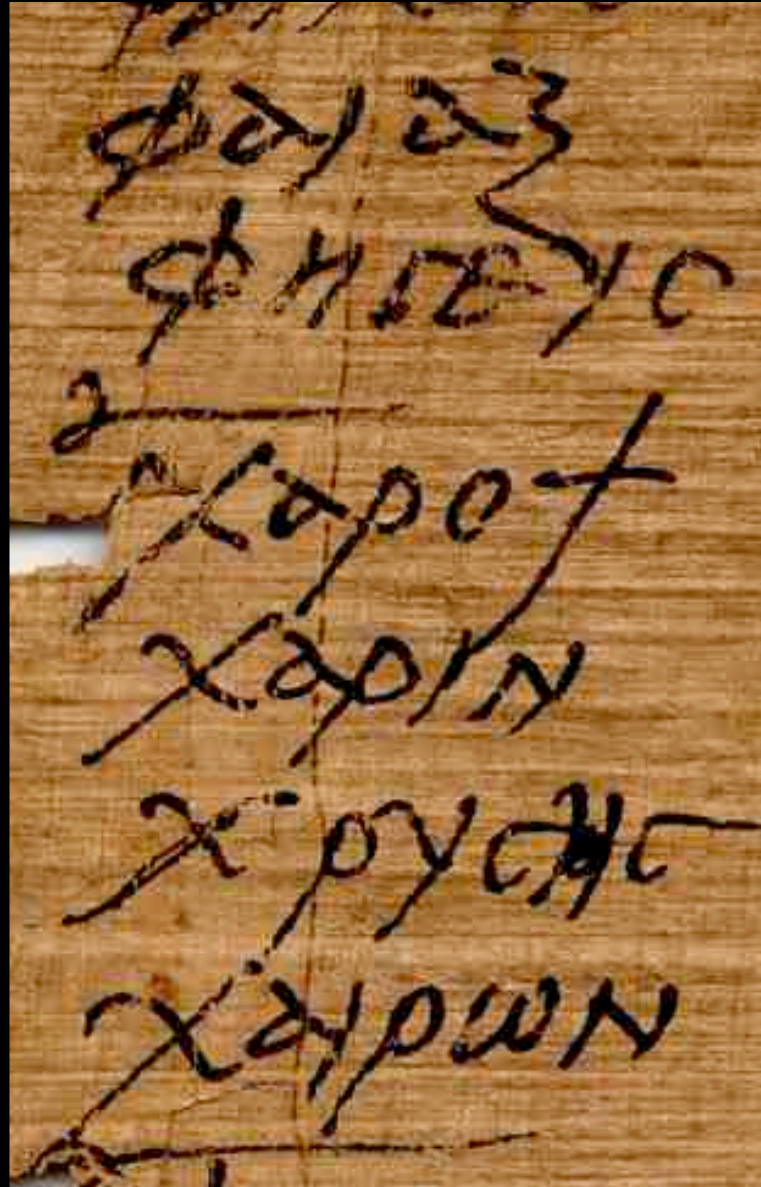 φαιαξ
φηγευϲ
χαροψ
χαριν
χρυϲηϲ
χαιρων